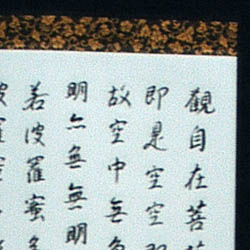 觀自在菩
即是空空
故空中無
明亦無無明
若波羅蜜多
波羅